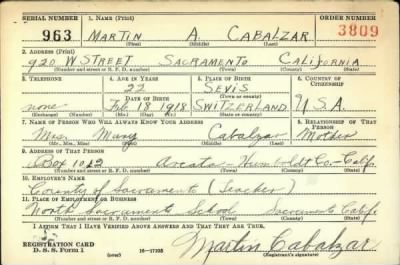 SERIAL NUMBER 1. NAME (Print) ORDER NUMBER
963 MARTIN A. CABALZAR 3809
(First) (Middle) (Last)
2. ADDRESS (Print)
920 W STREET SACRAMENTO CALIFORNIA
(Number and street or R. F. D. number) (Town) (County) (State)
3. TELEPHONE 4. AGE IN YEARS 5. PLACE OF BIRTH 6. COUNTRY OF CITIZENSHIP
22 SEVIS
DATE OF BIRTH (Town or county)
none Feb 18 1918 SWITZERLAND U.S.A.
(Exchange) (Number) (Mo.) (Day) (Yr.) (State or country)
7. NAME OF PERSON WHO WILL ALWAYS KNOW YOUR ADDRESS 8. RELATIONSHIP OF THAT PERSON
Mrs. Mary Cabalzar Mother
(Mr., Mrs., Miss) (First) (Middle) (Last)
9. ADDRESS OF THAT PERSON
Box 1012 Arcata - Humboldt Co. - Calif.
(Number and street or R. F. D. number) (Town) (County) (State)
10. EMPLOYER'S NAME
County of Sacramento (Teacher)
11. PLACE OF EMPLOYMENT OR BUSINESS
North Sacramento School Sacramento Calif.
(Number and street or R. F. D. number) (Town) (County) (State)
I AFFIRM THAT I HAVE VERIFIED ABOVE ANSWERS AND THAT THEY ARE TRUE.
REGISTRATION CARD
D. S. S. FORM 1 (over) 16-17105 Martin Cabalzar
(Registrant's signature)